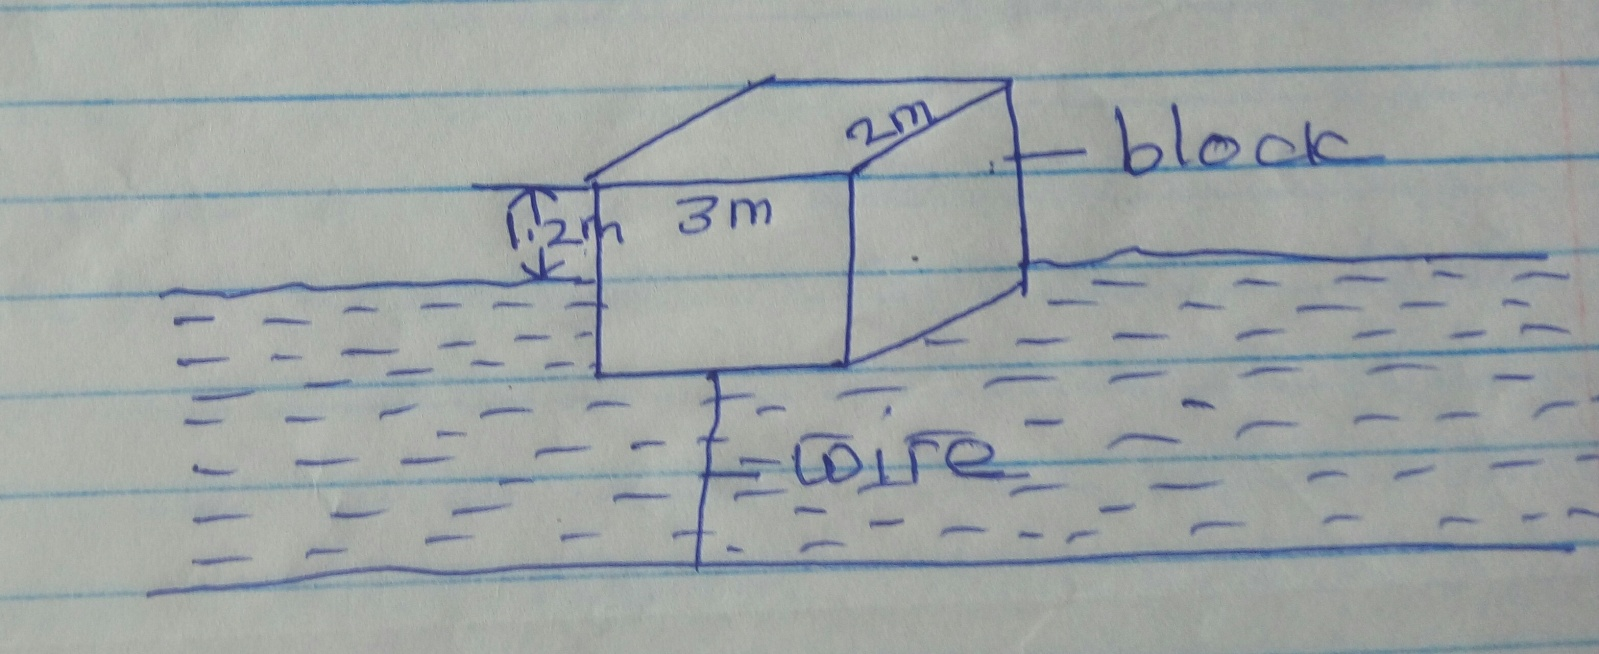 2m
block
1.2m
3m
wire